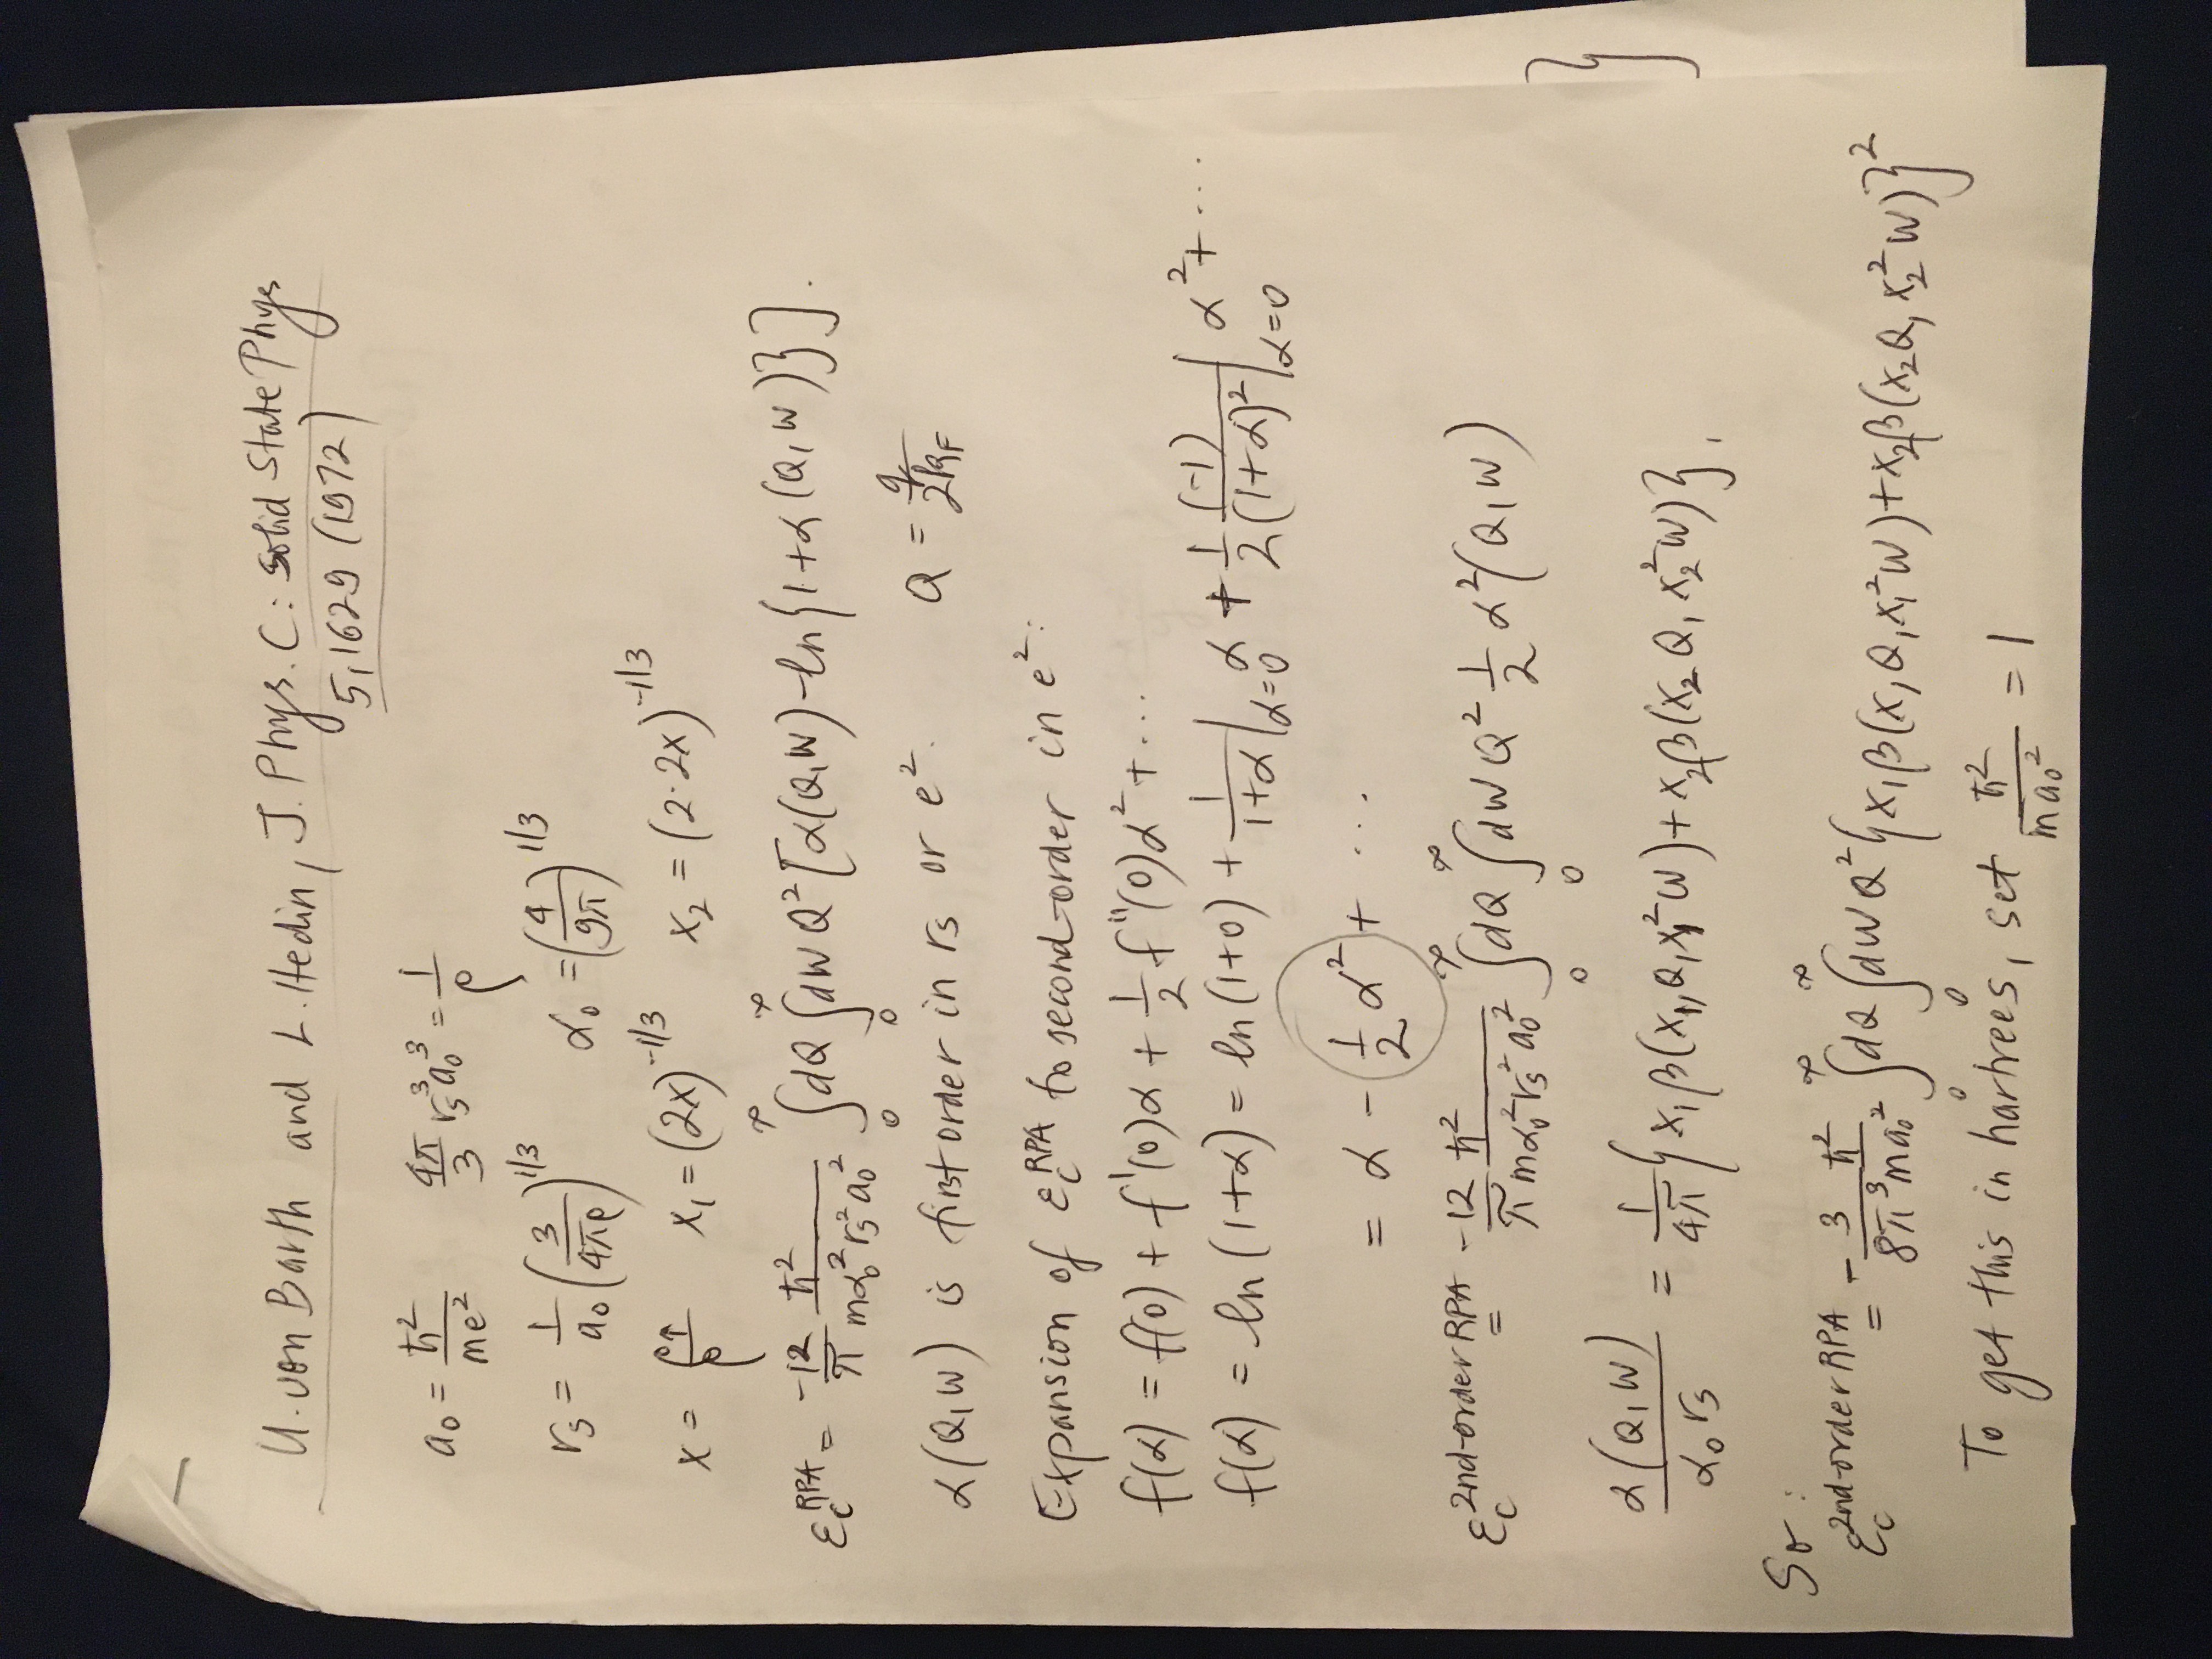 U. von Barth and L. Hedin, J. Phys. C: Solid State Phys
5, 1629 (1972)
a₀ = ħ²/me²   4π/3 rₛ³a₀³ = 1/ρ
rₛ = 1/a₀ (3/4πρ)^1/3   α₀ = (4/9π)^1/3
x = ρ↑/ρ   x₁ = (2x)^-1/3   x₂ = (2·2x)^-1/3
ε_c^RPA = -12/π ħ²/mα₀²rₛ²a₀² ∫₀^∞ dQ ∫₀^∞ dW Q² [α(Q,W) - ln{1+α(Q,W)}].
α(Q,W) is first order in rₛ or e².   Q = q/2k_F
Expansion of ε_c^RPA to second-order in e²:
f(α) = f(0) + f'(0)α + 1/2 f''(0)α² + ...
f(α) = ln(1+α) = ln(1+0) + 1/1+α|α=0 α + 1/2 (-1)/(1+α)²|α=0 α² + ...
= α - 1/2 α² + ...
ε_c^2nd-order RPA = -12/π ħ²/mα₀²rₛ²a₀² ∫₀^∞ dQ ∫₀^∞ dW Q² 1/2 α²(Q,W)
α(Q,W)/α₀rₛ = 1/4π {x₁β(x₁,Q,x₁²W) + x₂β(x₂Q, x₂²W)},
So:
ε_c^2nd-order RPA = - 3/8π³ ħ²/ma₀² ∫₀^∞ dQ ∫₀^∞ dW Q² {x₁β(x₁Q,x₁²W) + x₂β(x₂Q, x₂²W)}²
To get this in hartrees, set ħ²/ma₀² = 1
}